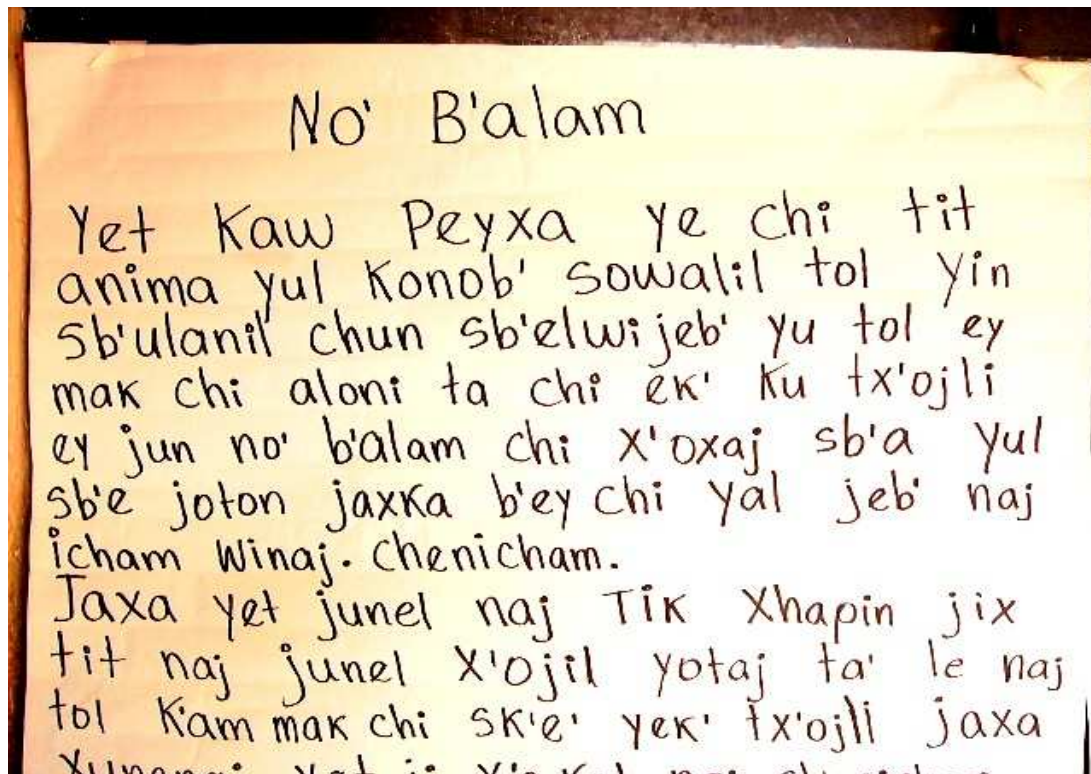 No' B'alam
Yet Kaw Peyxa ye chi tit
anima yul Konob' sowalil tol yin
sb'ulanil chun sb'elwijeb' yu tol ey
mak chi aloni ta chi ek' ku tx'ojli
ey jun no' b'alam chi x'oxaj sb'a yul
sb'e joton jaxka b'ey chi yal jeb' naj
icham winaj. Chenicham.
Jaxa yet junel naj Tik Xhapin jix
tit naj junel x'ojil yotaj ta' le naj
tol K'am mak chi sk'e' yek' tx'ojli jaxa